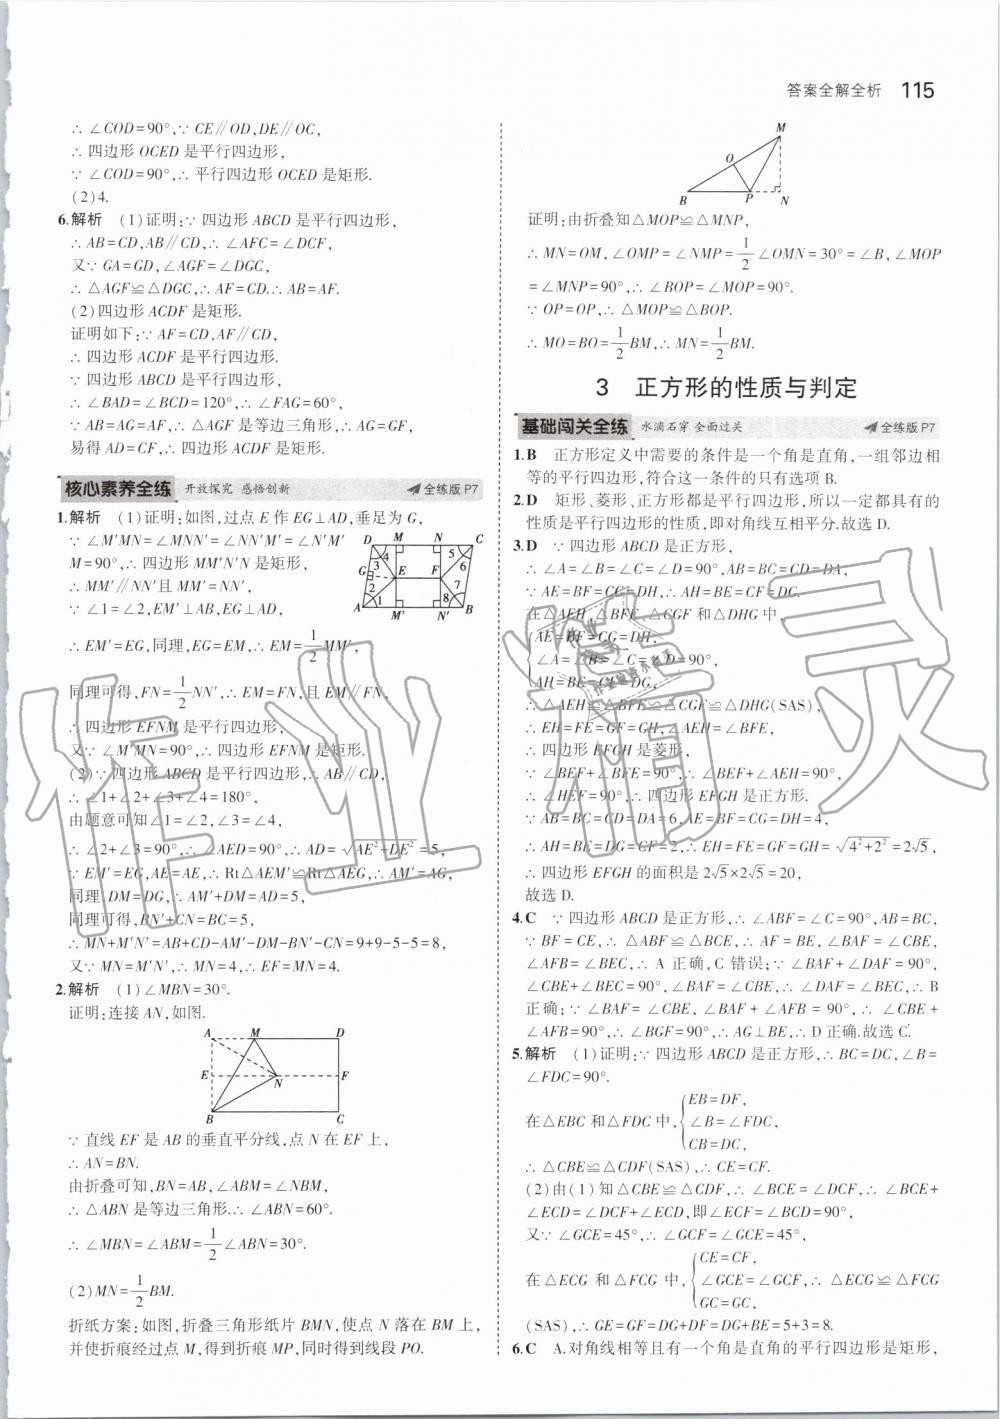 答案全解全析 115
∴∠COD=90°,∵CE∥OD,DE∥OC,
∴四边形OCED是平行四边形,
∵∠COD=90°,∴平行四边形OCED是矩形.
(2)4.
6.解析 (1)证明:∵四边形ABCD是平行四边形,
∴AB=CD,AB∥CD,∴∠AFC=∠DCF,
又∵GA=GD,∠AGF=∠DGC,
∴△AGF≌△DGC,∴AF=CD.∴AB=AF.
(2)四边形ACDF是矩形.
证明如下:∵AF=CD,AF∥CD,
∴四边形ACDF是平行四边形.
∵四边形ABCD是平行四边形,
∴∠BAD=∠BCD=120°,∴∠FAG=60°,
∵AB=AG=AF,∴△AGF是等边三角形,∴AG=GF,
易得AD=CF,∴四边形ACDF是矩形.
核心素养全练 开放探究 感悟创新 全练版P7
1.解析 (1)证明:如图,过点E作EG⊥AD,垂足为G,
∵∠M′MN=∠MNN′=∠NN′M′=∠N′M′
M=90°,∴四边形MM′N′N是矩形,
∴MM′∥NN′且MM′=NN′,
∵∠1=∠2,EM′⊥AB,EG⊥AD,
D M N C
4 3 5 6
G E F
2 1 7 8
A M′ N′ B
∴EM′=EG,同理,EG=EM,∴EM=1/2MM′,
同理可得,FN=1/2NN′,∴EM=FN,且EM∥FN,
∴四边形EFNM是平行四边形,
又∵∠M′MN=90°,∴四边形EFNM是矩形.
(2)∵四边形ABCD是平行四边形,∴AB∥CD,
∴∠1+∠2+∠3+∠4=180°,
由题意可知∠1=∠2,∠3=∠4,
∴∠2+∠3=90°,∴∠AED=90°,∴AD=√(AE²+DE²)=5,
∵EM′=EG,AE=AE,∴Rt△AEM′≌Rt△AEG,∴AM′=AG,
同理,DM=DG,∴AM′+DM=AD=5,
同理可得,BN′+CN=BC=5,
∴MN+M′N′=AB+CD-AM′-DM-BN′-CN=9+9-5-5=8,
又∵MN=M′N′,∴MN=4,∴EF=MN=4.
2.解析 (1)∠MBN=30°.
证明:连接AN,如图.
A M D
E N F
B C
∵直线EF是AB的垂直平分线,点N在EF上,
∴AN=BN.
由折叠可知,BN=AB,∠ABM=∠NBM,
∴△ABN是等边三角形.∴∠ABN=60°.
∴∠MBN=∠ABM=1/2∠ABN=30°.
(2)MN=1/2BM.
折纸方案:如图,折叠三角形纸片BMN,使点N落在BM上,
并使折痕经过点M,得到折痕MP,同时得到线段PO.
M
O
B P N
证明:由折叠知△MOP≌△MNP,
∴MN=OM,∠OMP=∠NMP=1/2∠OMN=30°=∠B,∠MOP
=∠MNP=90°,∴∠BOP=∠MOP=90°.
∵OP=OP,∴△MOP≌△BOP.
∴MO=BO=1/2BM,∴MN=1/2BM.
3 正方形的性质与判定
基础闯关全练 水滴石穿 全面过关 全练版P7
1.B 正方形定义中需要的条件是一个角是直角,一组邻边相
等的平行四边形,符合这一条件的只有选项B.
2.D 矩形、菱形、正方形都是平行四边形,所以一定都具有的
性质是平行四边形的性质,即对角线互相平分.故选D.
3.D ∵四边形ABCD是正方形,
∴∠A=∠B=∠C=∠D=90°,AB=BC=CD=DA,
∵AE=BF=CG=DH,∴AH=BE=CF=DG.
在△AEH、△BFE、△CGF和△DHG中,
AE=BF=CG=DH,
∠A=∠B=∠C=∠D=90°,
AH=BE=CF=DG,
∴△AEH≌△BFE≌△CGF≌△DHG(SAS),
∴EH=FE=GF=GH,∠AEH=∠BFE,
∴四边形EFGH是菱形,
∵∠BEF+∠BFE=90°,∴∠BEF+∠AEH=90°,
∴∠HEF=90°,∴四边形EFGH是正方形.
∵AB=BC=CD=DA=6,AE=BF=CG=DH=4,
∴AH=BE=DG=CF=2,∴EH=FE=GF=GH=√(4²+2²)=2√5,
∴四边形EFGH的面积是2√5×2√5=20,
故选D.
4.C ∵四边形ABCD是正方形,∴∠ABF=∠C=90°,AB=BC,
∵BF=CE,∴△ABF≌△BCE,∴AF=BE,∠BAF=∠CBE,
∠AFB=∠BEC,∴A正确,C错误;∵∠BAF+∠DAF=90°,
∠CBE+∠BEC=90°,∠BAF=∠CBE,∴∠DAF=∠BEC,∴B
正确;∵∠BAF=∠CBE,∠BAF+∠AFB=90°,∴∠CBE+
∠AFB=90°,∴∠BGF=90°,∴AG⊥BE,∴D正确.故选C.
5.解析 (1)证明:∵四边形ABCD是正方形,∴BC=DC,∠B=
∠FDC=90°.
在△EBC和△FDC中,
EB=DF,
∠B=∠FDC,
CB=DC,
∴△CBE≌△CDF(SAS),∴CE=CF.
(2)由(1)知△CBE≌△CDF,∴∠BCE=∠DCF,∴∠BCE+
∠ECD=∠DCF+∠ECD,即∠ECF=∠BCD=90°,
又∵∠GCE=45°,∴∠GCF=∠GCE=45°.
在△ECG和△FCG中,
CE=CF,
∠GCE=∠GCF,∴△ECG≌△FCG
GC=GC,
(SAS),∴GE=GF=DG+DF=DG+BE=5+3=8.
6.C A.对角线相等且有一个角是直角的平行四边形是矩形,
作业精灵